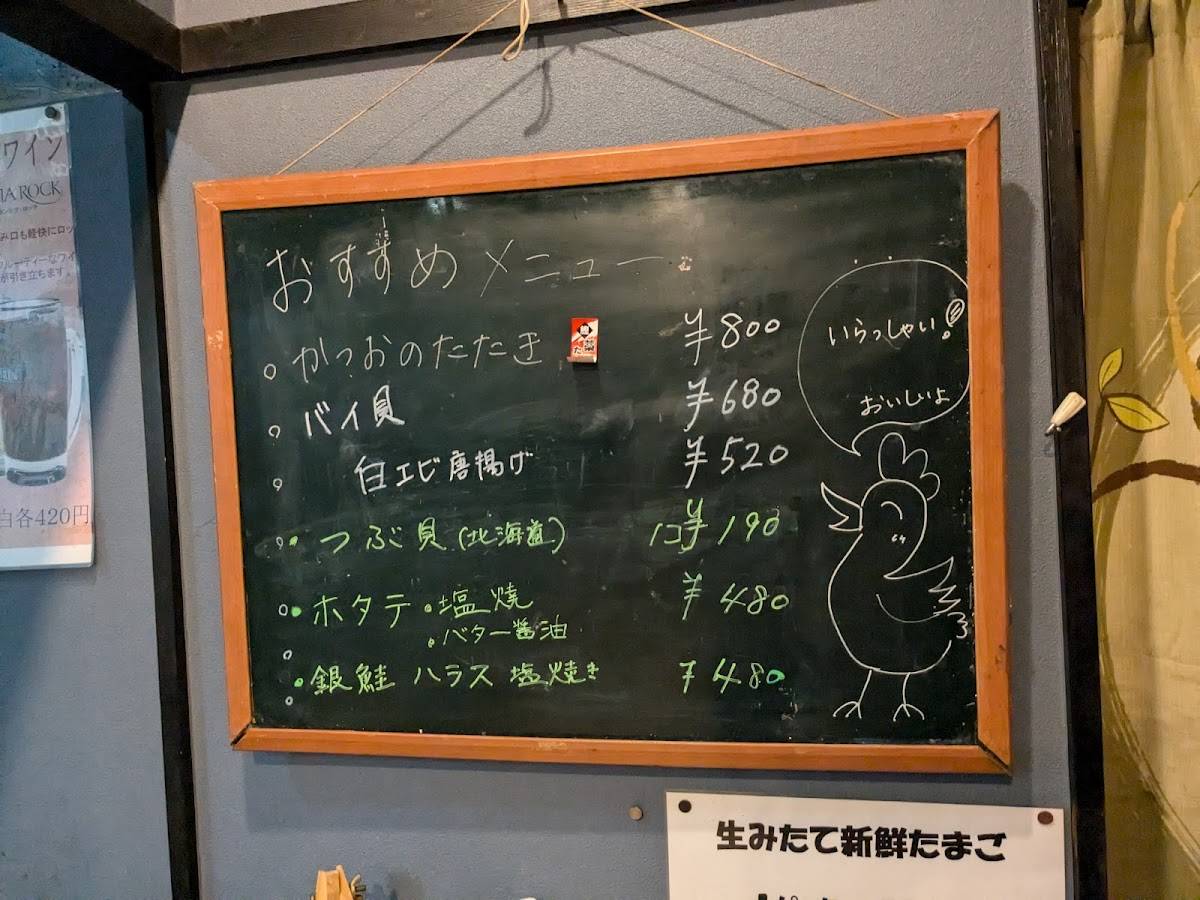 おすすめメニュー
かつおのたたき ¥800
バイ貝 ¥680
白エビ唐揚げ ¥520
・つぶ貝(北海道) 1コ¥190
・ホタテ・塩焼 ¥480
・バター醤油
・銀鮭 ハラス 塩焼き ¥480
いらっしゃい!
おいしいよ
ワイン
ROCK
み口も軽快にロッ
ルーティーなワイ
が引き立ちます。
白各420円
生みたて新鮮たまご